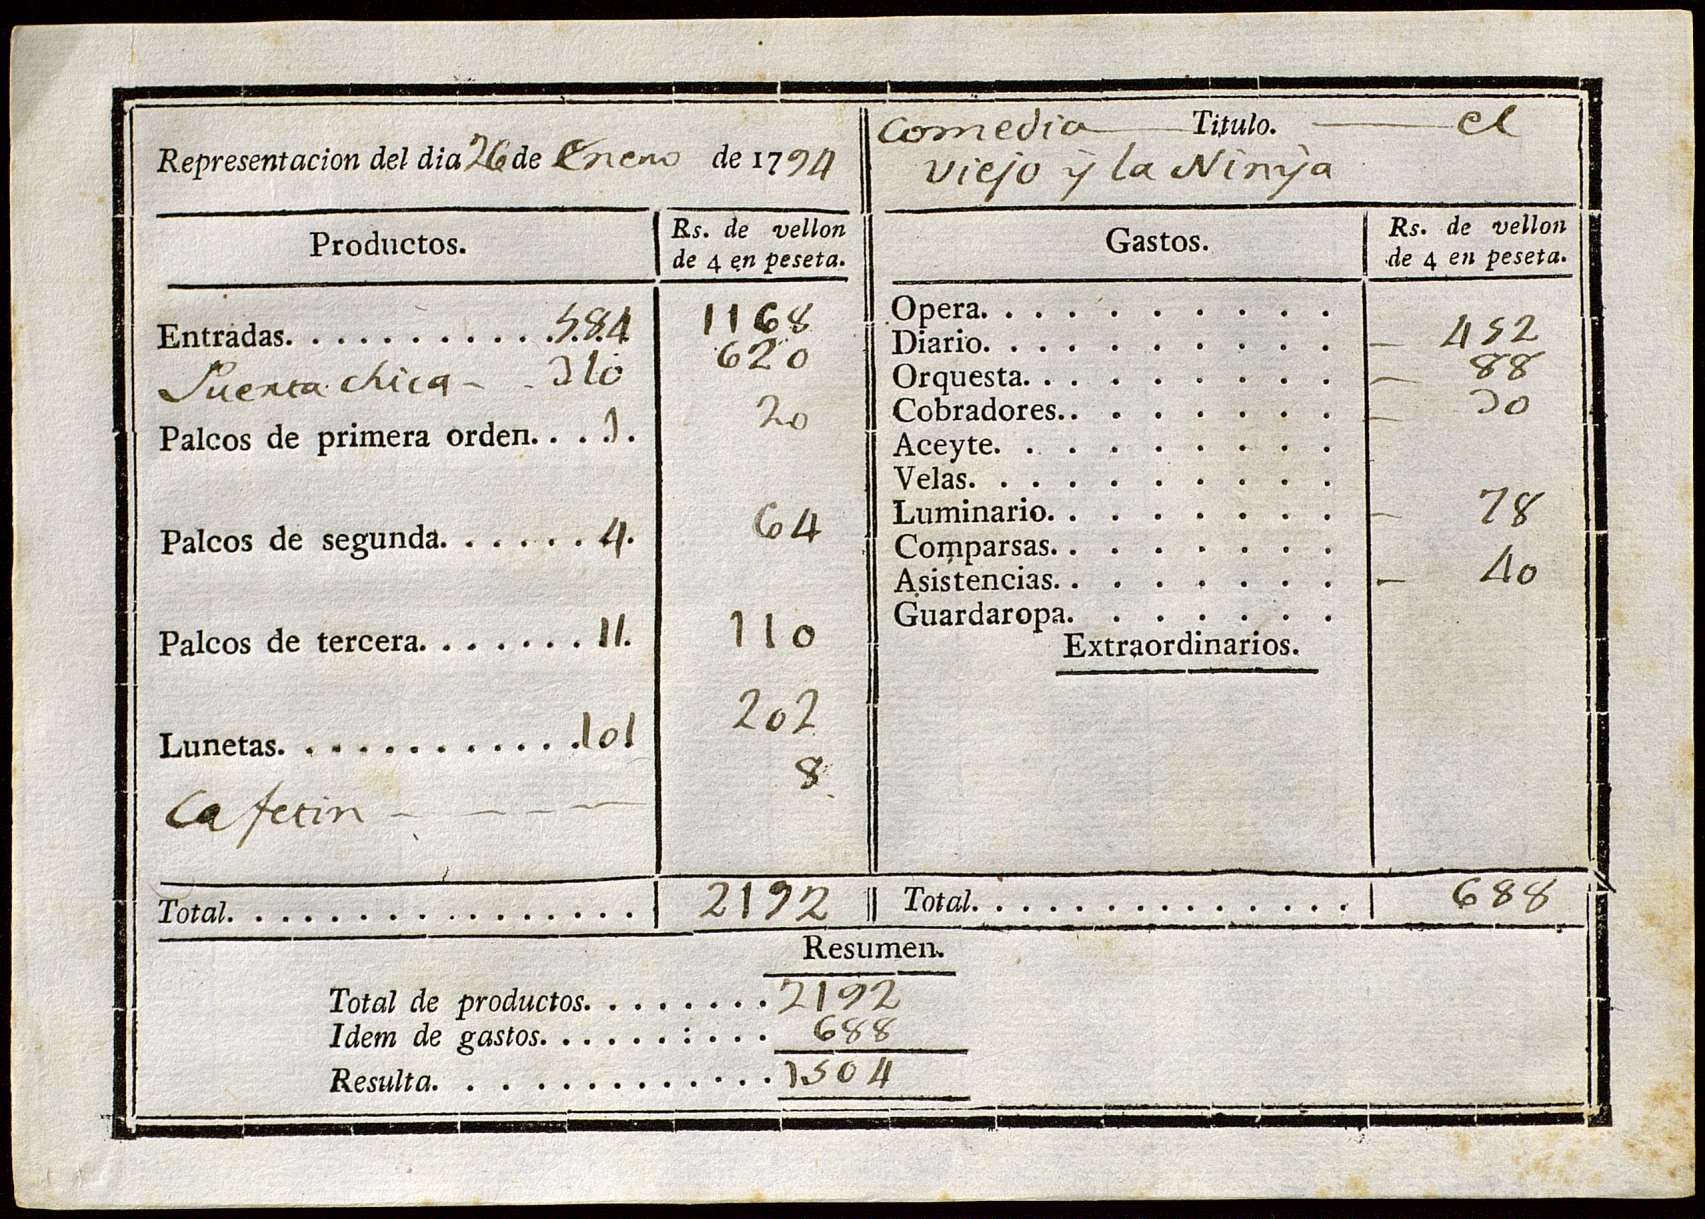 Representacion del dia 26 de Enero de 1794
Comedia Titulo. el
viejo ÿ la Ninÿa
Productos. Rs. de vellon de 4 en peseta.
Entradas. 584 1168
Puerta chica 310 620
Palcos de primera orden. 1. 20
Palcos de segunda. 4. 64
Palcos de tercera. 11. 110
Lunetas. 101 202
Cafetin 8
Total. 2192
Gastos. Rs. de vellon de 4 en peseta.
Opera.
Diario. 452
Orquesta. 88
Cobradores. 30
Aceyte.
Velas.
Luminario. 78
Comparsas.
Asistencias. 40
Guardaropa.
Extraordinarios.
Total. 688
Resumen.
Total de productos. 2192
Idem de gastos. 688
Resulta. 1504